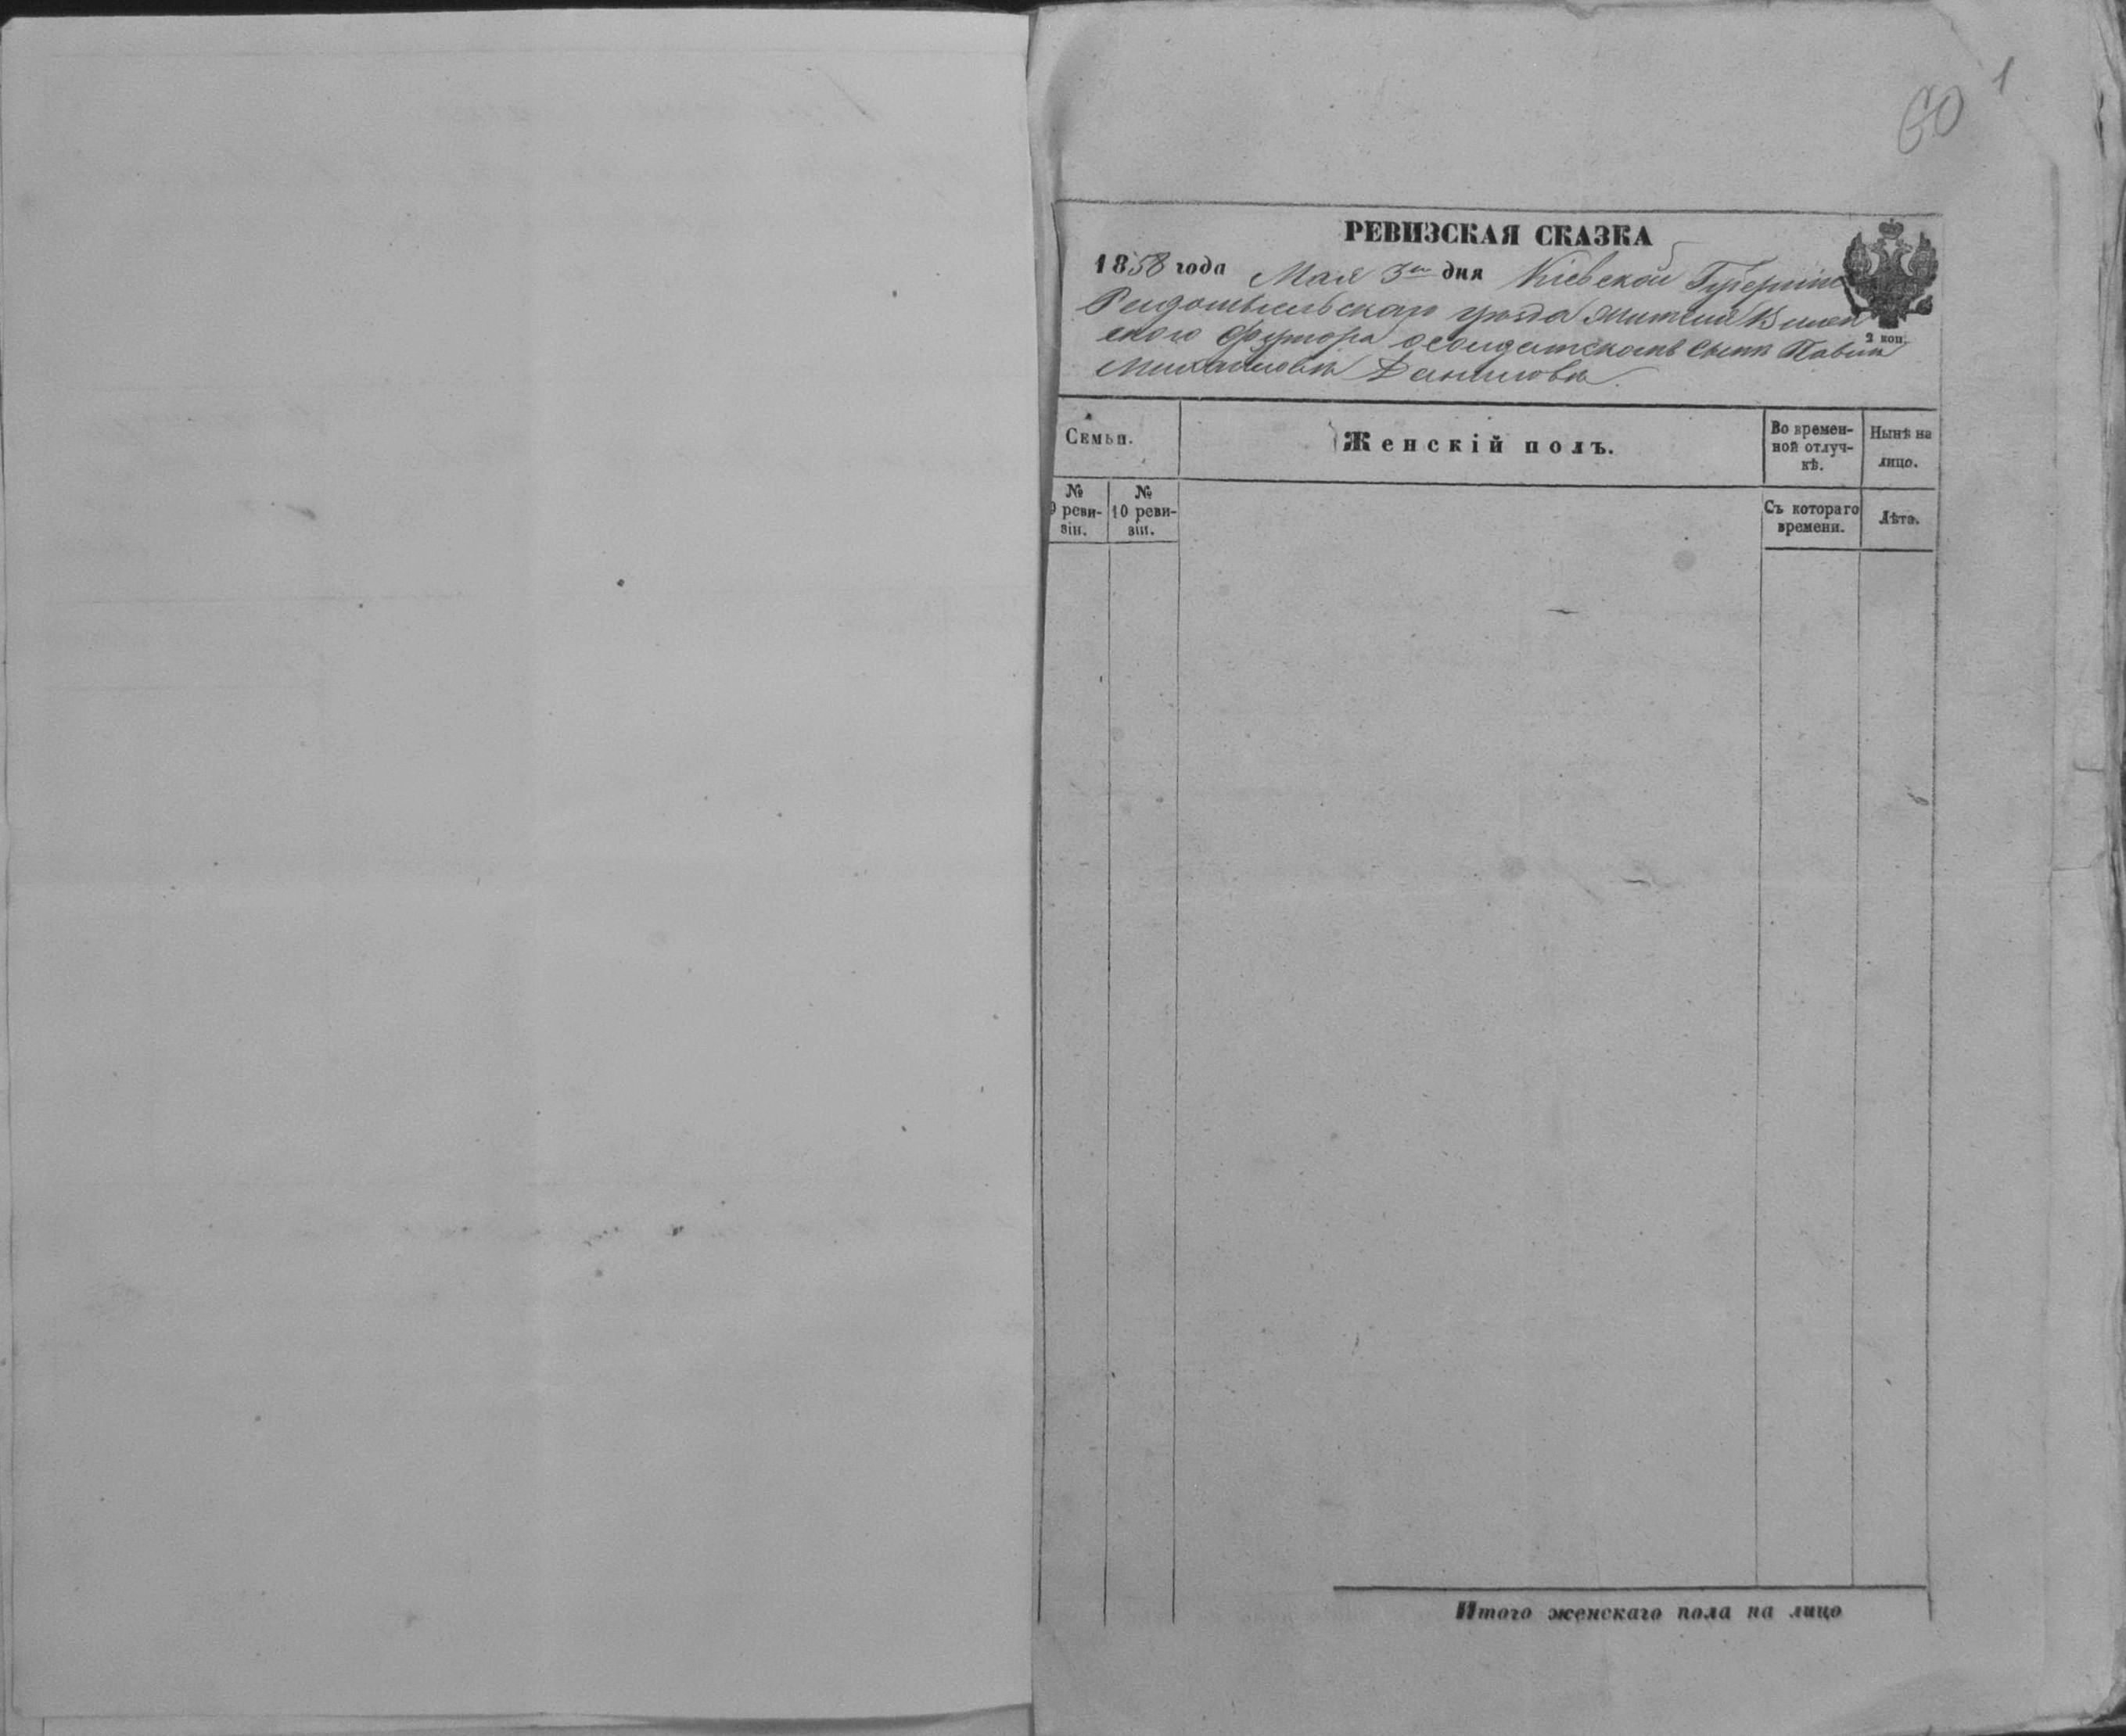 1
60
РЕВИЗСКАЯ СКАЗКА
1858 года Мая 3го дня Кіевской Губерніи
Радомысльскаго уѣзда
скаго Футора о солдатскомъ сынѣ
Михайловѣ Даниловѣ.
2 коп.
Семьи.
Женскій полъ.
Во времен-
ной отлуч-
кѣ.
Нынѣ на
лицо.
№
9 реви-
зіи.
№
10 реви-
зіи.
Съ котораго
времени.
Лѣта.
Итого женскаго пола на лицо